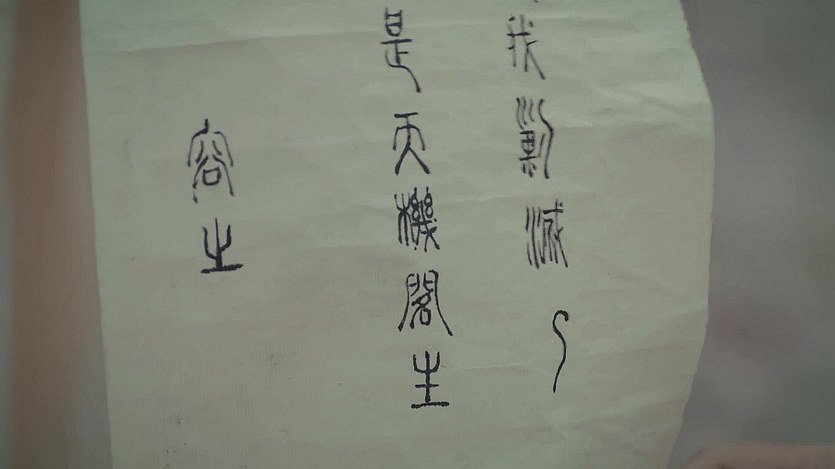 我剿滅了
是天機閣主
容之